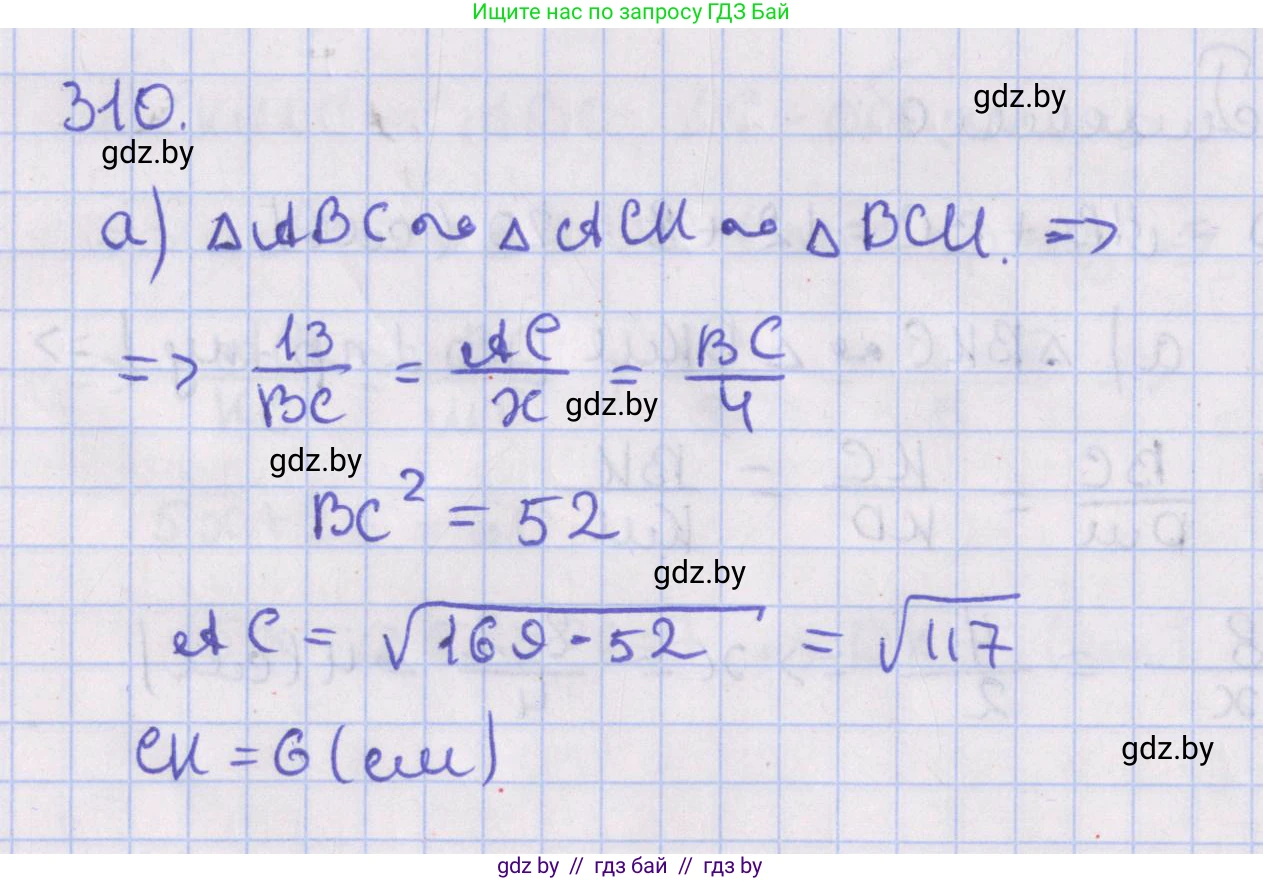 Ищите нас по запросу ГДЗ Бай
310.
gdz.by
gdz.by
а) △ABC ∾ △ACH ∾ △BCH. =>
=> 13/BC = AC/x = BC/4
gdz.by
gdz.by
BC² = 52
gdz.by
AC = √169-52 = √117
CH = 6 (см)
gdz.by
gdz.by // гдз бай // гдз by